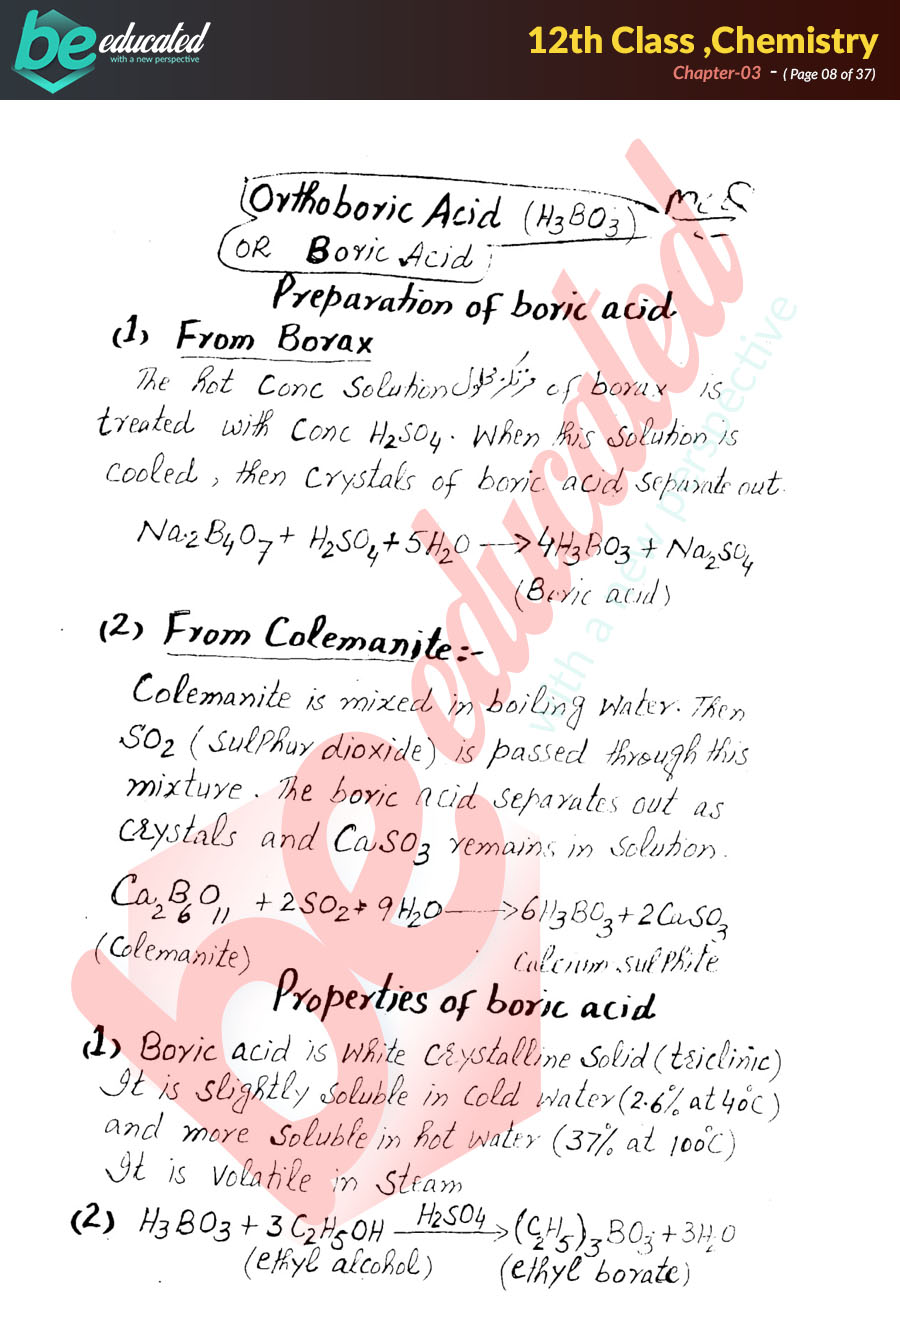 be educated
with a new perspective
12th Class ,Chemistry
Chapter-03 - ( Page 08 of 37)
Orthoboric Acid (H3BO3) MCQ
OR Boric Acid
Preparation of boric acid
(1) From Borax
The hot Conc Solution of borax is
treated with Conc H2SO4. When this solution is
cooled, then Crystals of boric acid separate out.
Na2B4O7 + H2SO4 + 5H2O → 4H3BO3 + Na2SO4
(Boric acid)
(2) From Colemanite:-
Colemanite is mixed in boiling water. Then
SO2 (Sulphur dioxide) is passed through this
mixture. The boric acid separates out as
crystals and CaSO3 remains in solution.
Ca2B6O11 + 2SO2 + 9H2O → 6H3BO3 + 2CaSO3
(Colemanite) Calcium sulphite
Properties of boric acid
(1) Boric acid is white crystalline solid (triclinic)
It is slightly soluble in cold water (2.6% at 40°C)
and more soluble in hot water (37% at 100°C)
It is volatile in steam
(2) H3BO3 + 3C2H5OH H2SO4→ (C2H5)3BO3 + 3H2O
(ethyl alcohol) (ethyl borate)
be educated
with a new perspective